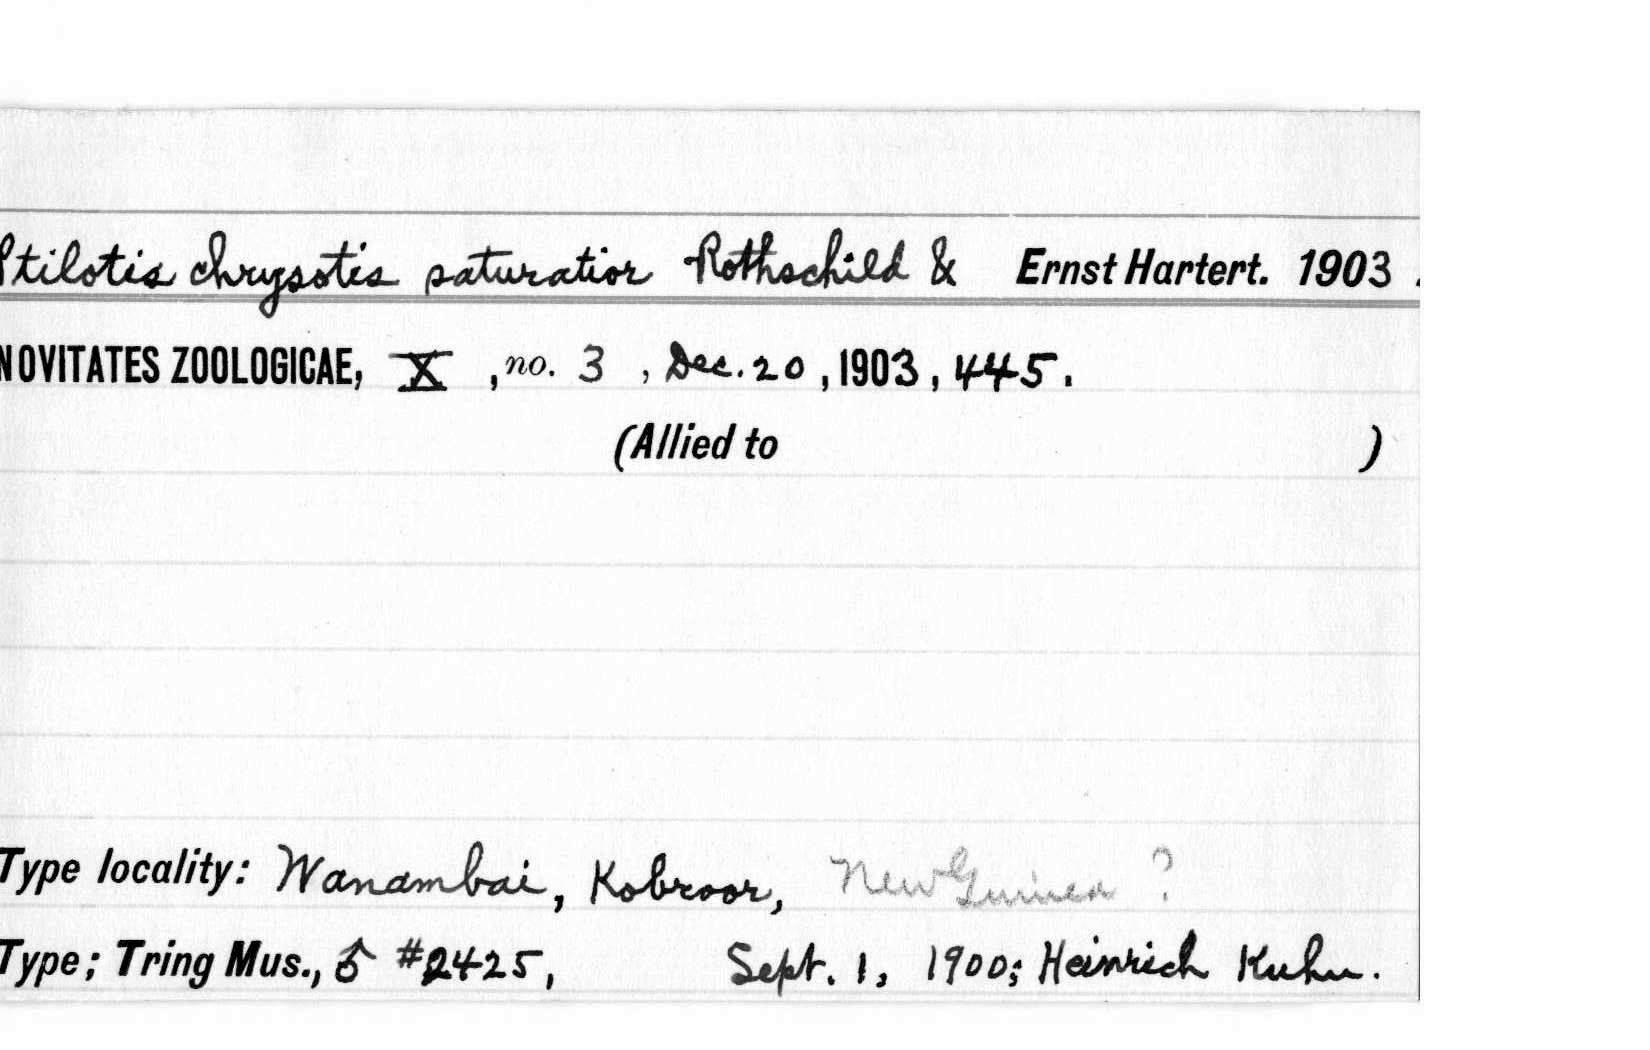 Ptilotis chrysotis saturatior Rothschild & Ernst Hartert. 1903.
NOVITATES ZOOLOGICAE, X, no. 3, Dec. 20, 1903, 445.
(Allied to )
Type locality: Wanambai, Kobroor, New Guinea ?
Type; Tring Mus., ♂ #2425, Sept. 1, 1900; Heinrich Kuhn.